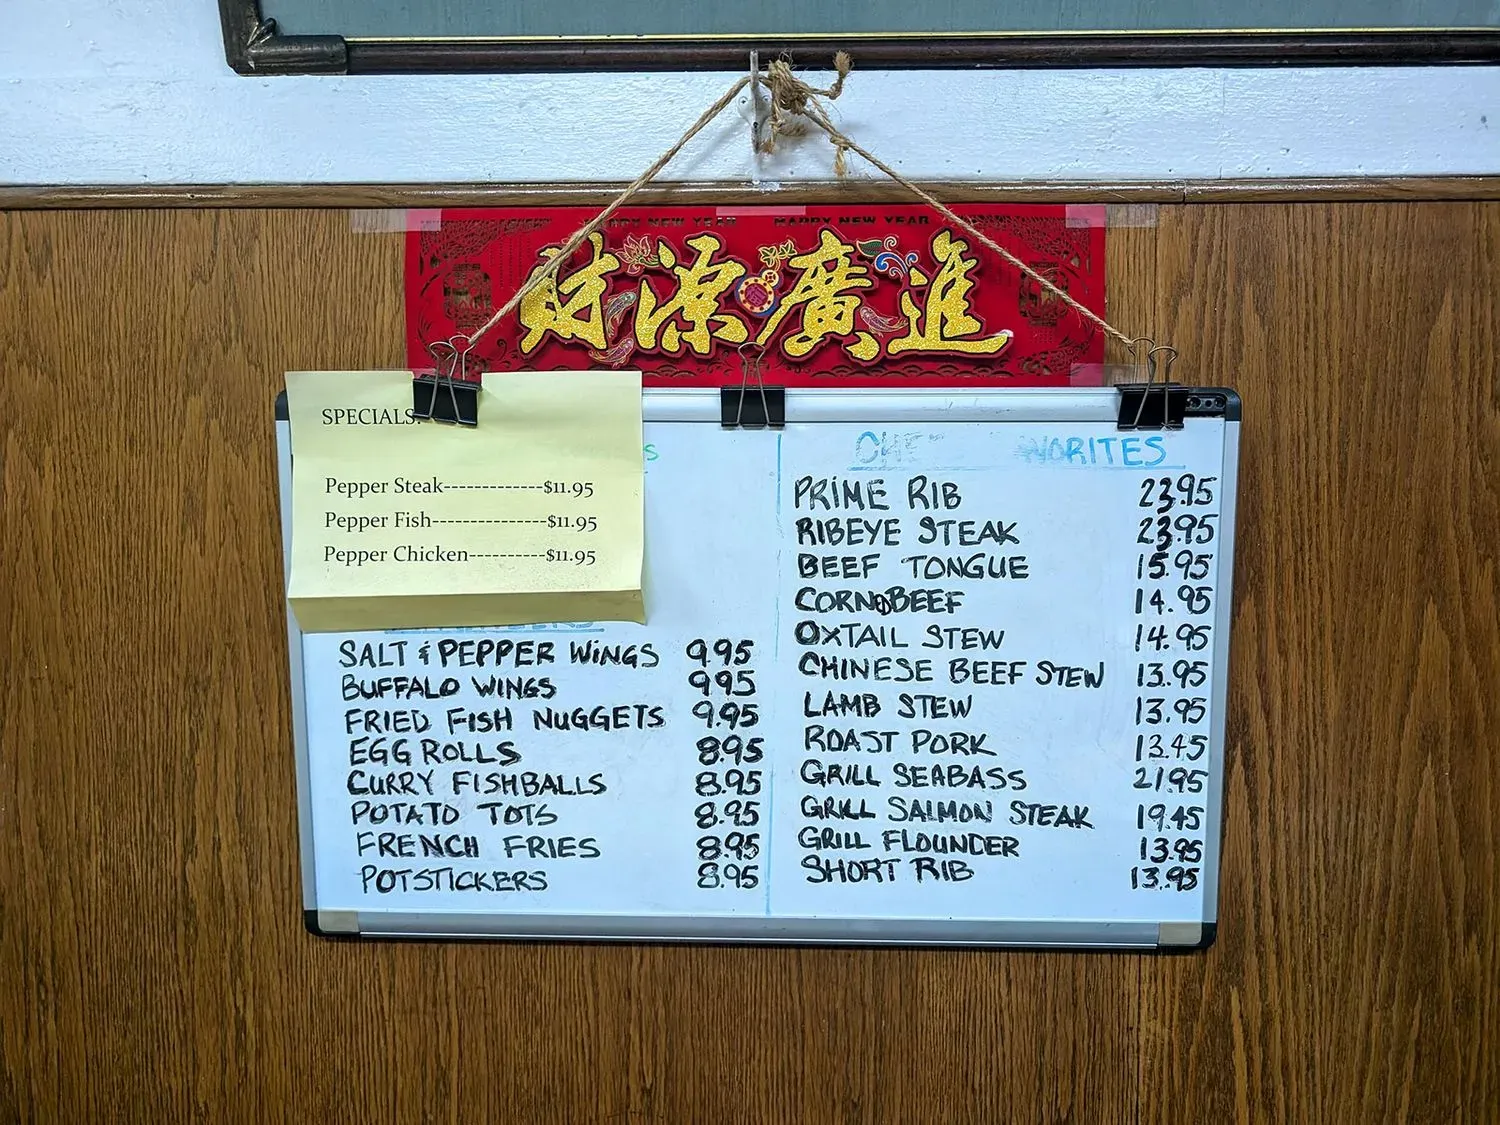 HAPPY NEW YEAR HAPPY NEW YEAR
財源廣進
SPECIALS:
Pepper Steak-------------$11.95
Pepper Fish---------------$11.95
Pepper Chicken----------$11.95
SALT & PEPPER WINGS 9.95
BUFFALO WINGS 9.95
FRIED FISH NUGGETS 9.95
EGG ROLLS 8.95
CURRY FISHBALLS 8.95
POTATO TOTS 8.95
FRENCH FRIES 8.95
POTSTICKERS 8.95
PRIME RIB 23.95
RIBEYE STEAK 23.95
BEEF TONGUE 15.95
CORNDBEEF 14.95
OXTAIL STEW 14.95
CHINESE BEEF STEW 13.95
LAMB STEW 13.95
ROAST PORK 13.45
GRILL SEABASS 21.95
GRILL SALMON STEAK 19.45
GRILL FLOUNDER 13.95
SHORT RIB 13.95